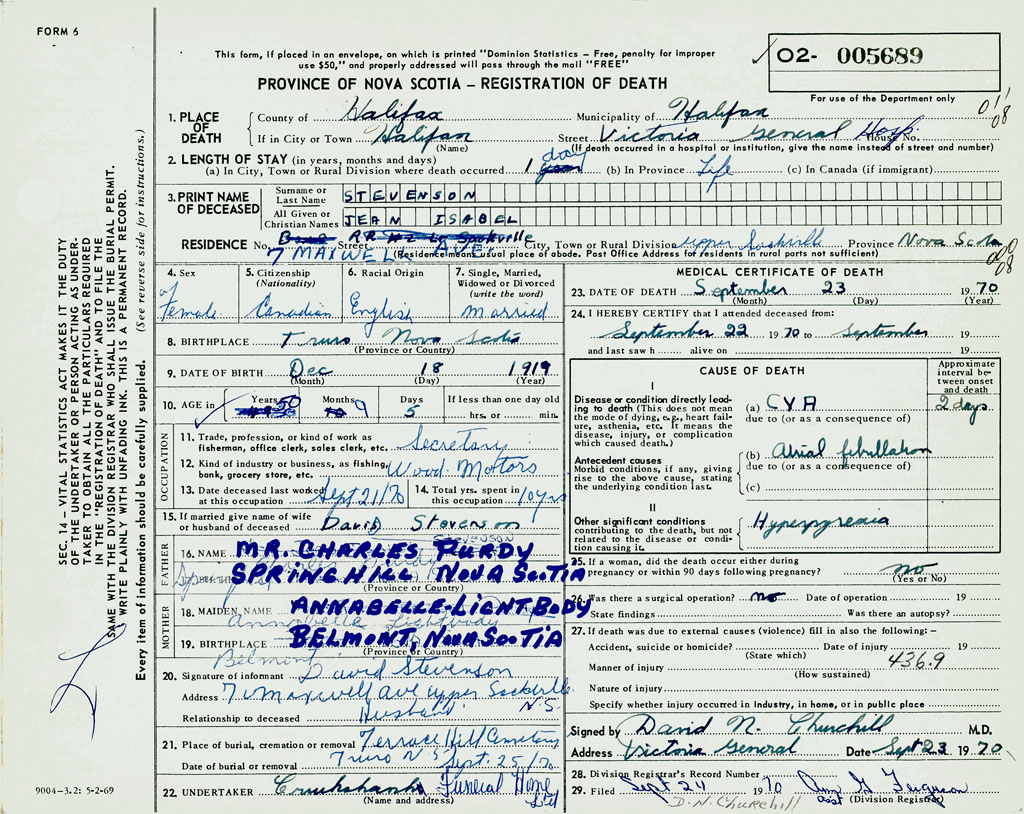 FORM 6
This form, if placed in an envelope, on which is printed "Dominion Statistics – Free, penalty for improper
use $50," and properly addressed will pass through the mail "FREE"
02- 005689
For use of the Department only
PROVINCE OF NOVA SCOTIA – REGISTRATION OF DEATH
SEC. 14 – VITAL STATISTICS ACT MAKES IT THE DUTY
OF THE UNDERTAKER OR PERSON ACTING AS UNDER-
TAKER TO OBTAIN ALL THE PARTICULARS REQUIRED
IN THE "REGISTRATION OF DEATH" AND TO FILE THE
SAME WITH THE DIVISION REGISTRAR WHO SHALL ISSUE THE BURIAL PERMIT.
WRITE PLAINLY WITH UNFADING INK. THIS IS A PERMANENT RECORD.
Every item of information should be carefully supplied. (See reverse side for instructions.)
1. PLACE OF DEATH County of Halifax Municipality of Halifax
If in City or Town Halifax Street Victoria General Hosp. House No.
(Name) (If death occurred in a hospital or institution, give the name instead of street and number)
2. LENGTH OF STAY (in years, months and days)
(a) In City, Town or Rural Division where death occurred 1 day (b) In Province Life (c) In Canada (if immigrant)
3. PRINT NAME OF DECEASED Surname or Last Name STEVENSON
All Given or Christian Names JEAN ISABEL
RESIDENCE No. Street City, Town or Rural Division upper Sackville Province Nova Scotia
7 MAXWELL AVE (Residence means usual place of abode. Post Office Address for residents in rural parts not sufficient)
4. Sex Female
5. Citizenship (Nationality) Canadian
6. Racial Origin English
7. Single, Married, Widowed or Divorced (write the word) Married
8. BIRTHPLACE Truro Nova Scotia
(Province or Country)
9. DATE OF BIRTH Dec 18 1919
(Month) (Day) (Year)
10. AGE in Years 50 Months 9 Days 5 If less than one day old hrs. or min.
OCCUPATION
11. Trade, profession, or kind of work as
fisherman, office clerk, sales clerk, etc. Secretary
12. Kind of industry or business, as fishing,
bank, grocery store, etc. Wood Motors
13. Date deceased last worked at this occupation Sept 21/70
14. Total yrs. spent in this occupation 10 yrs
15. If married give name of wife
or husband of deceased David Stevenson
STEVENSON
FATHER
16. NAME MR. CHARLES PURDY
SPRINGHILL NOVA SCOTIA
(Province or Country)
MOTHER
18. MAIDEN NAME ANNABELLE-LIGHTBODY
Annabella Lightbody
19. BIRTHPLACE BELMONT, NOVA SCOTIA
(Province or Country)
Belmont
20. Signature of informant David Stevenson
Address 7 Maxwell Ave upper Sackville N.S.
Relationship to deceased Husband
21. Place of burial, cremation or removal Terrace Hill Cemetary
Date of burial or removal Truro N S Sept. 25/70
22. UNDERTAKER Cruikshanks Funeral Home Ltd
(Name and address)
9004-3.2: 5-2-69
MEDICAL CERTIFICATE OF DEATH
23. DATE OF DEATH September 23 1970
(Month) (Day) (Year)
24. I HEREBY CERTIFY that I attended deceased from:
September 22 1970 to September 19
and last saw h alive on 19
CAUSE OF DEATH
Approximate interval between onset and death
I
Disease or condition directly leading
to death (This does not mean
the mode of dying, e.g., heart failure,
asthenia, etc. It means the
disease, injury, or complication
which caused death.)
(a) CVA 2 days
due to (or as a consequence of)
Antecedent causes
Morbid conditions, if any, giving
rise to the above cause, stating
the underlying condition last.
(b) Atrial fibrillation
due to (or as a consequence of)
(c)
II
Other significant conditions
contributing to the death, but not
related to the disease or condition
causing it.
Hyperpyrexia
25. If a woman, did the death occur either during
pregnancy or within 90 days following pregnancy? no
(Yes or No)
26. Was there a surgical operation? no Date of operation 19
State findings Was there an autopsy?
27. If death was due to external causes (violence) fill in also the following: –
Accident, suicide or homicide? Date of injury 19
(State which)
436.9
Manner of injury
(How sustained)
Nature of injury
Specify whether injury occurred in industry, in home, or in public place
Signed by David N. Churchill M.D.
Address Victoria General Date Sept 23 1970
28. Division Registrar's Record Number
29. Filed Sept 24 1970 Ferguson
asst (Division Registrar)
D. N. CHURCHILL